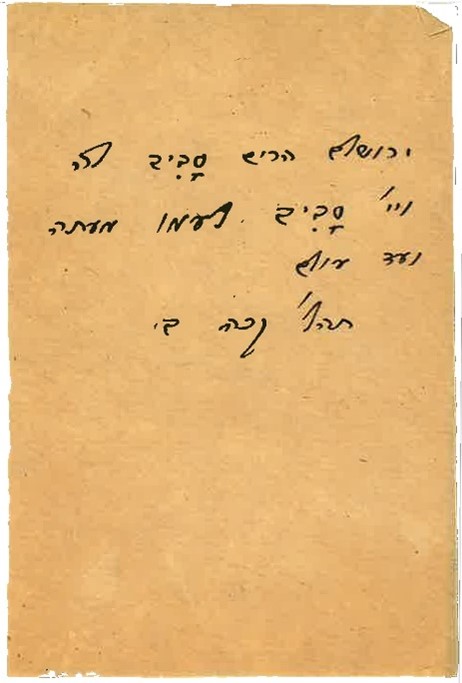 ירושלם הרים סָבִיב לה
ויי' סָבִיב לעמו מעתה
ועד עולם
תהל' קכה ב'